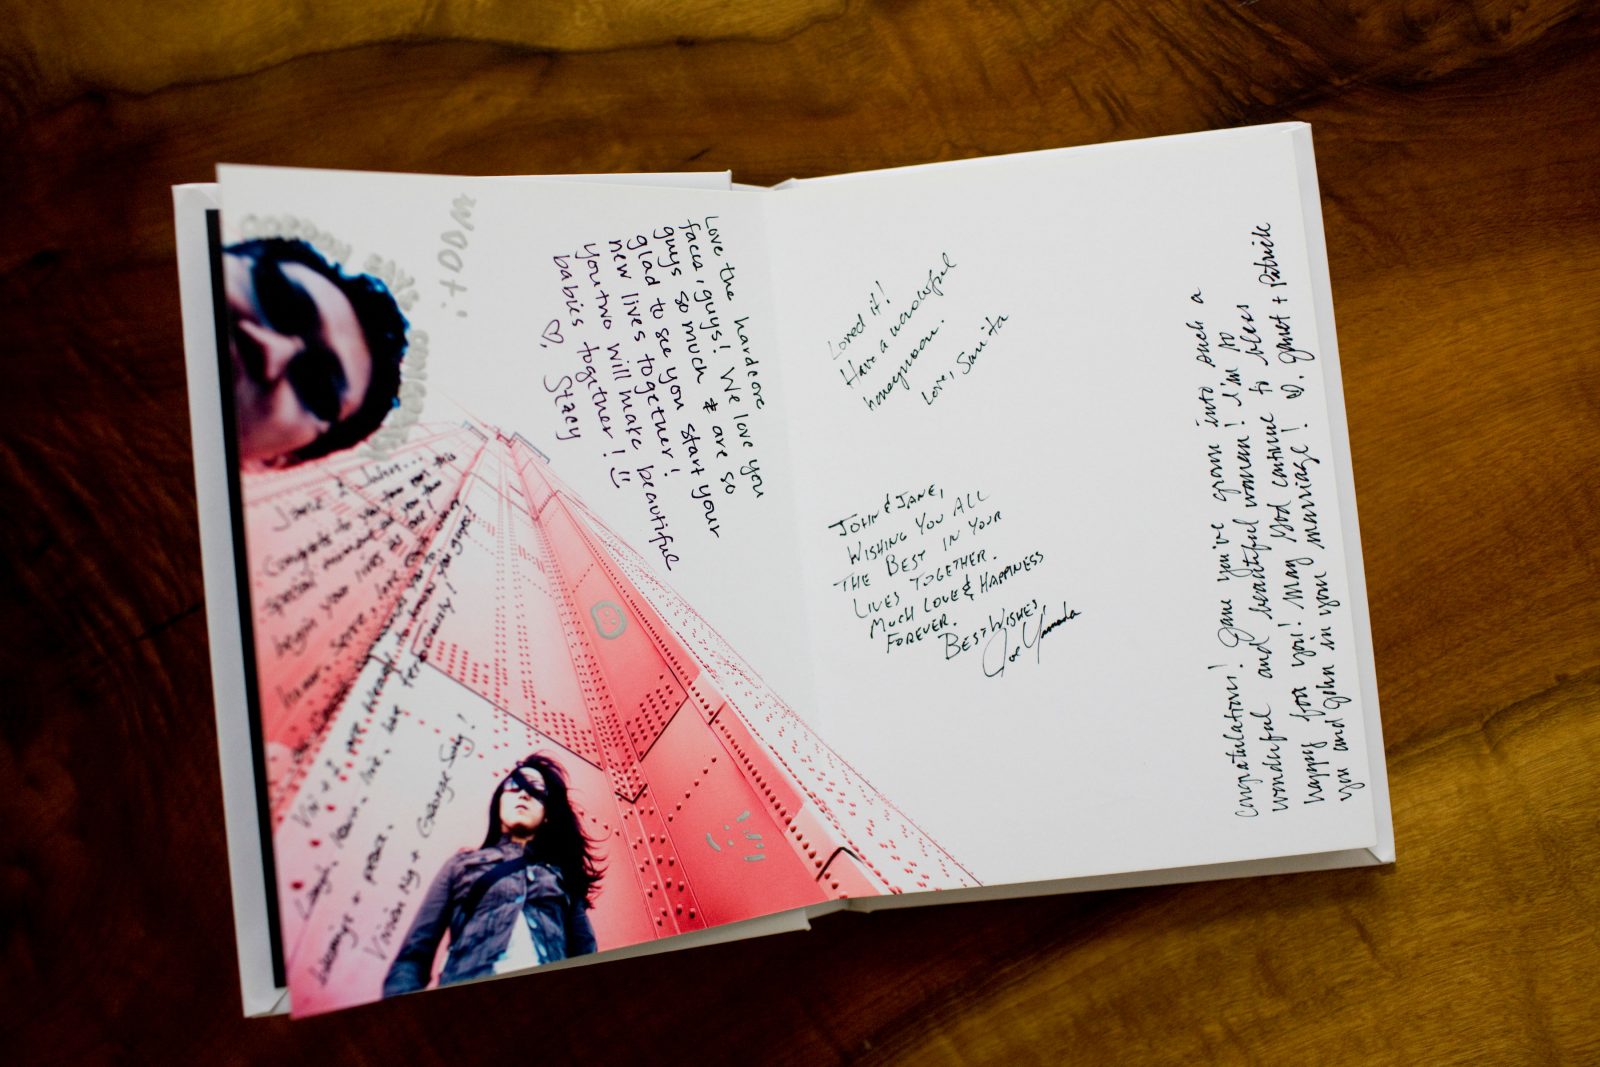 Love the hardcore
faces, guys! We love you
guys so much & are so
glad to see you start your
new lives together!
you two will make beautiful
babies together! :)
♡, Stacy
Jane & John...
Congrats to you two on this
special moment as you two
begin your lives as one!
personally!
Laugh, learn, live, love
+ peace.
Vivian Ng + George Sudy!
Loved it!
Have a wonderful
honeymoon.
Love, Sarita
JOHN & JANE,
WISHING YOU ALL
THE BEST IN YOUR
LIVES TOGETHER.
MUCH LOVE & HAPPINESS
FOREVER.
BEST WISHES
Joe Yamada
Congratulations! Jane you've grown into such a
wonderful and beautiful woman! I'm so
happy for you! May God continue to bless
you and John in your marriage! ♡. Janet + Patrick